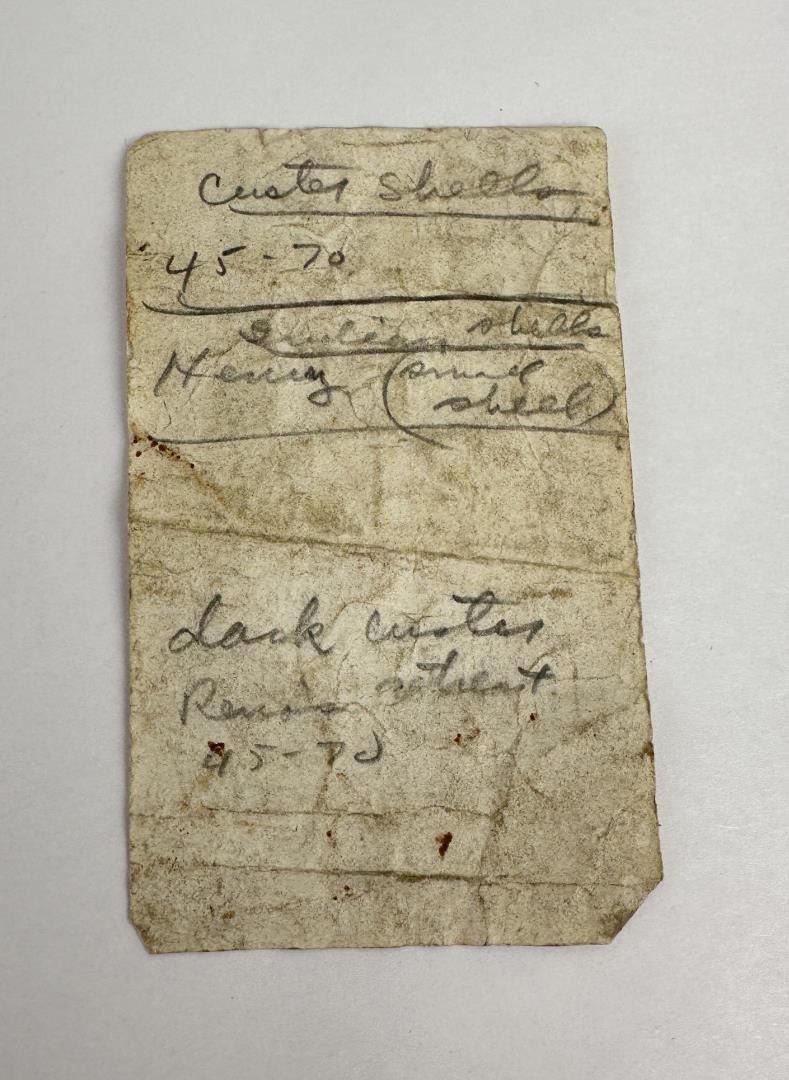 Custer shells
45-70
Indian shells
Henry (small
shell)
dark Custer
Reno's retreat
45-70